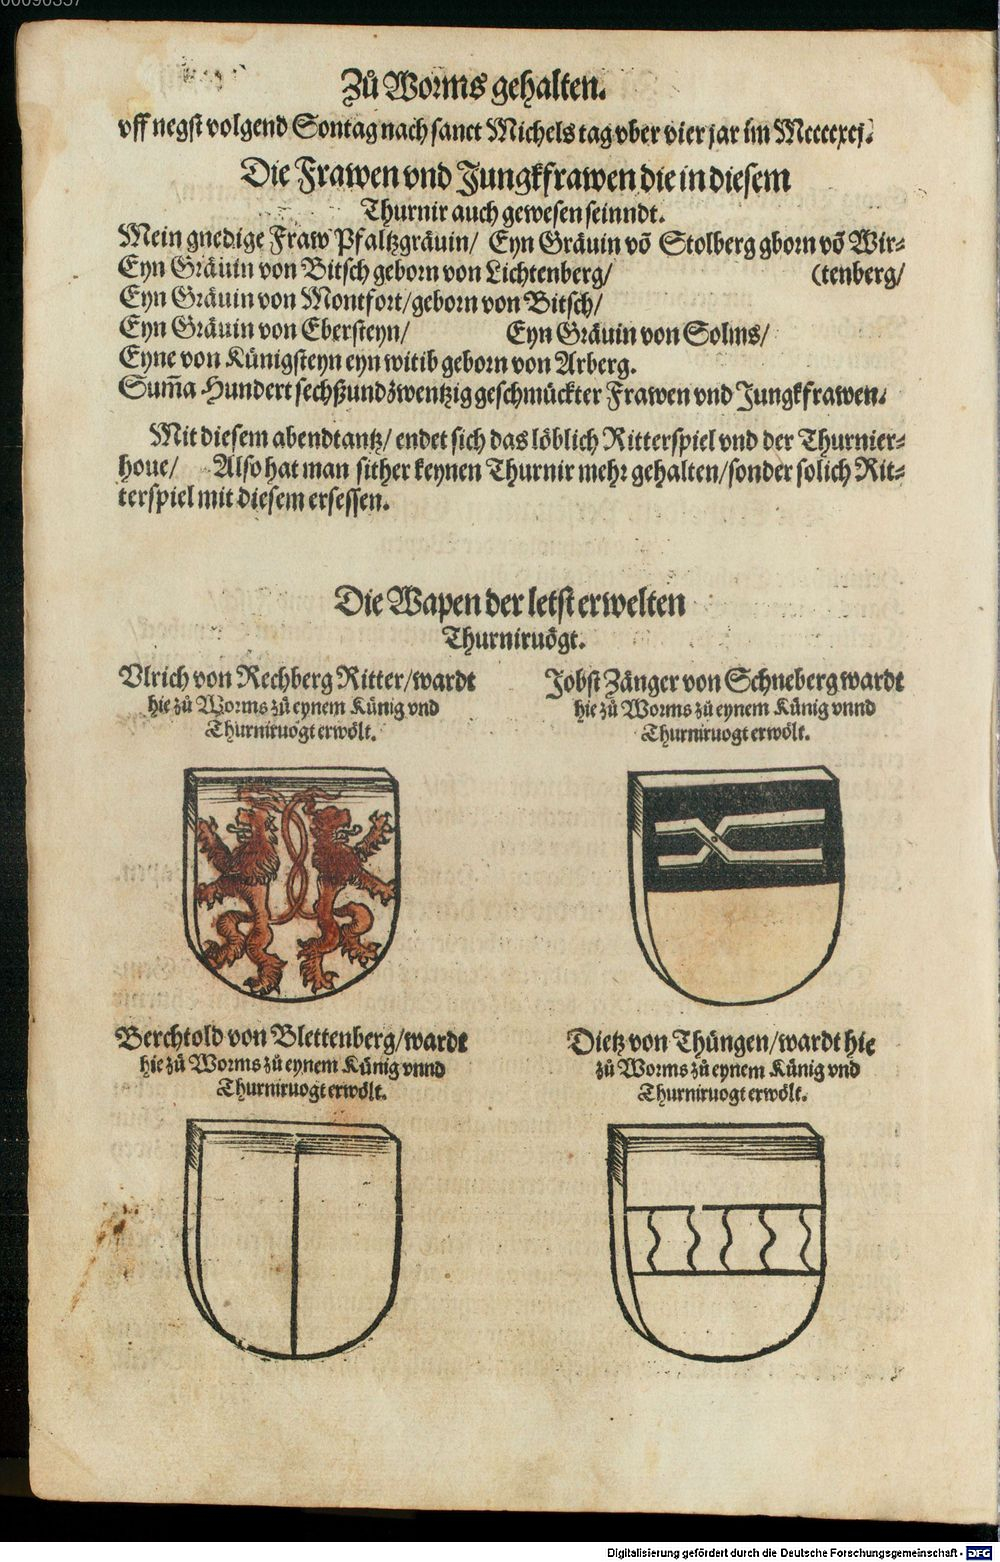 00090357
Zů Worms gehalten.
vff negst volgend Sontag nach sanct Michels tag vber vier jar im Mccccxcj.
Die Frawen vnd Jungkfrawen die in diesem
Thurnir auch gewesen seinndt.
Mein gnedige Fraw Pfaltzgräuin/ Eyn Gräuin võ Stolberg gborn võ Wir-
Eyn Gräuin von Bitsch geborn von Lichtenberg/ (tenberg/
Eyn Gräuin von Montfort/geborn von Bitsch/
Eyn Gräuin von Ebersteyn/ Eyn Gräuin von Solms/
Eyne von Künigsteyn eyn witib geborn von Arberg.
Sum̃a Hundert sechßundzwentzig geschmückter Frawen vnd Jungkfrawen.
Mit diesem abendtantz/ endet sich das löblich Ritterspiel vnd der Thurnier-
houe/ Also hat man sither keynen Thurnir mehr gehalten/sonder solich Rit-
terspiel mit diesem ersessen.
Die Wapen der letst erwelten
Thurniruögt.
Vlrich von Rechberg Ritter/wardt
hie zů Worms zů eynem Künig vnd
Thurniruogt erwölt.
Jobst Zänger von Schneberg wardt
hie zů Worms zů eynem Künig vnnd
Thurniruogt erwölt.
Berchtold von Blettenberg/wardt
hie zů Worms zů eynem Künig vnnd
Thurniruogt erwölt.
Dietz von Thüngen/wardt hie
zů Worms zů eynem Künig vnd
Thurniruogt erwölt.
Digitalisierung gefördert durch die Deutsche Forschungsgemeinschaft - DFG